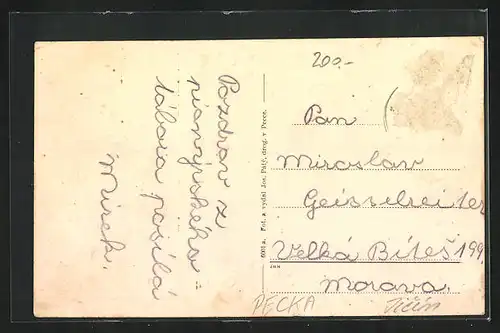 200.-
Pozdrav z
pionýrského
tábora posílá
Mirek.
Fot. a vydal Jos. Patý, drog. v Pecce.
6001 a.
Pan
Miroslav
Geisselreiter
Velká Bíteš 199
Morava.
PECKA
Jičín